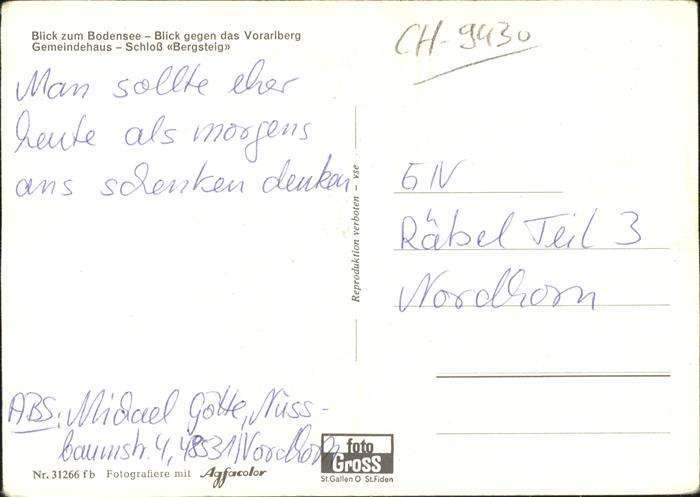 Blick zum Bodensee – Blick gegen das Vorarlberg
Gemeindehaus – Schloß «Bergsteig»
CH-9430
Man sollte eher
heute als morgens
ans schenken denken
Reproduktion verboten – vse
GN
Räbel Teil 3
Nordhorn
ABS: Michael Götte, Nuss-
baumstr. 4, 48531 Nordhorn
foto
Gross
St.Gallen O St.Fiden
Nr. 31266 fb Fotografiere mit Agfacolor